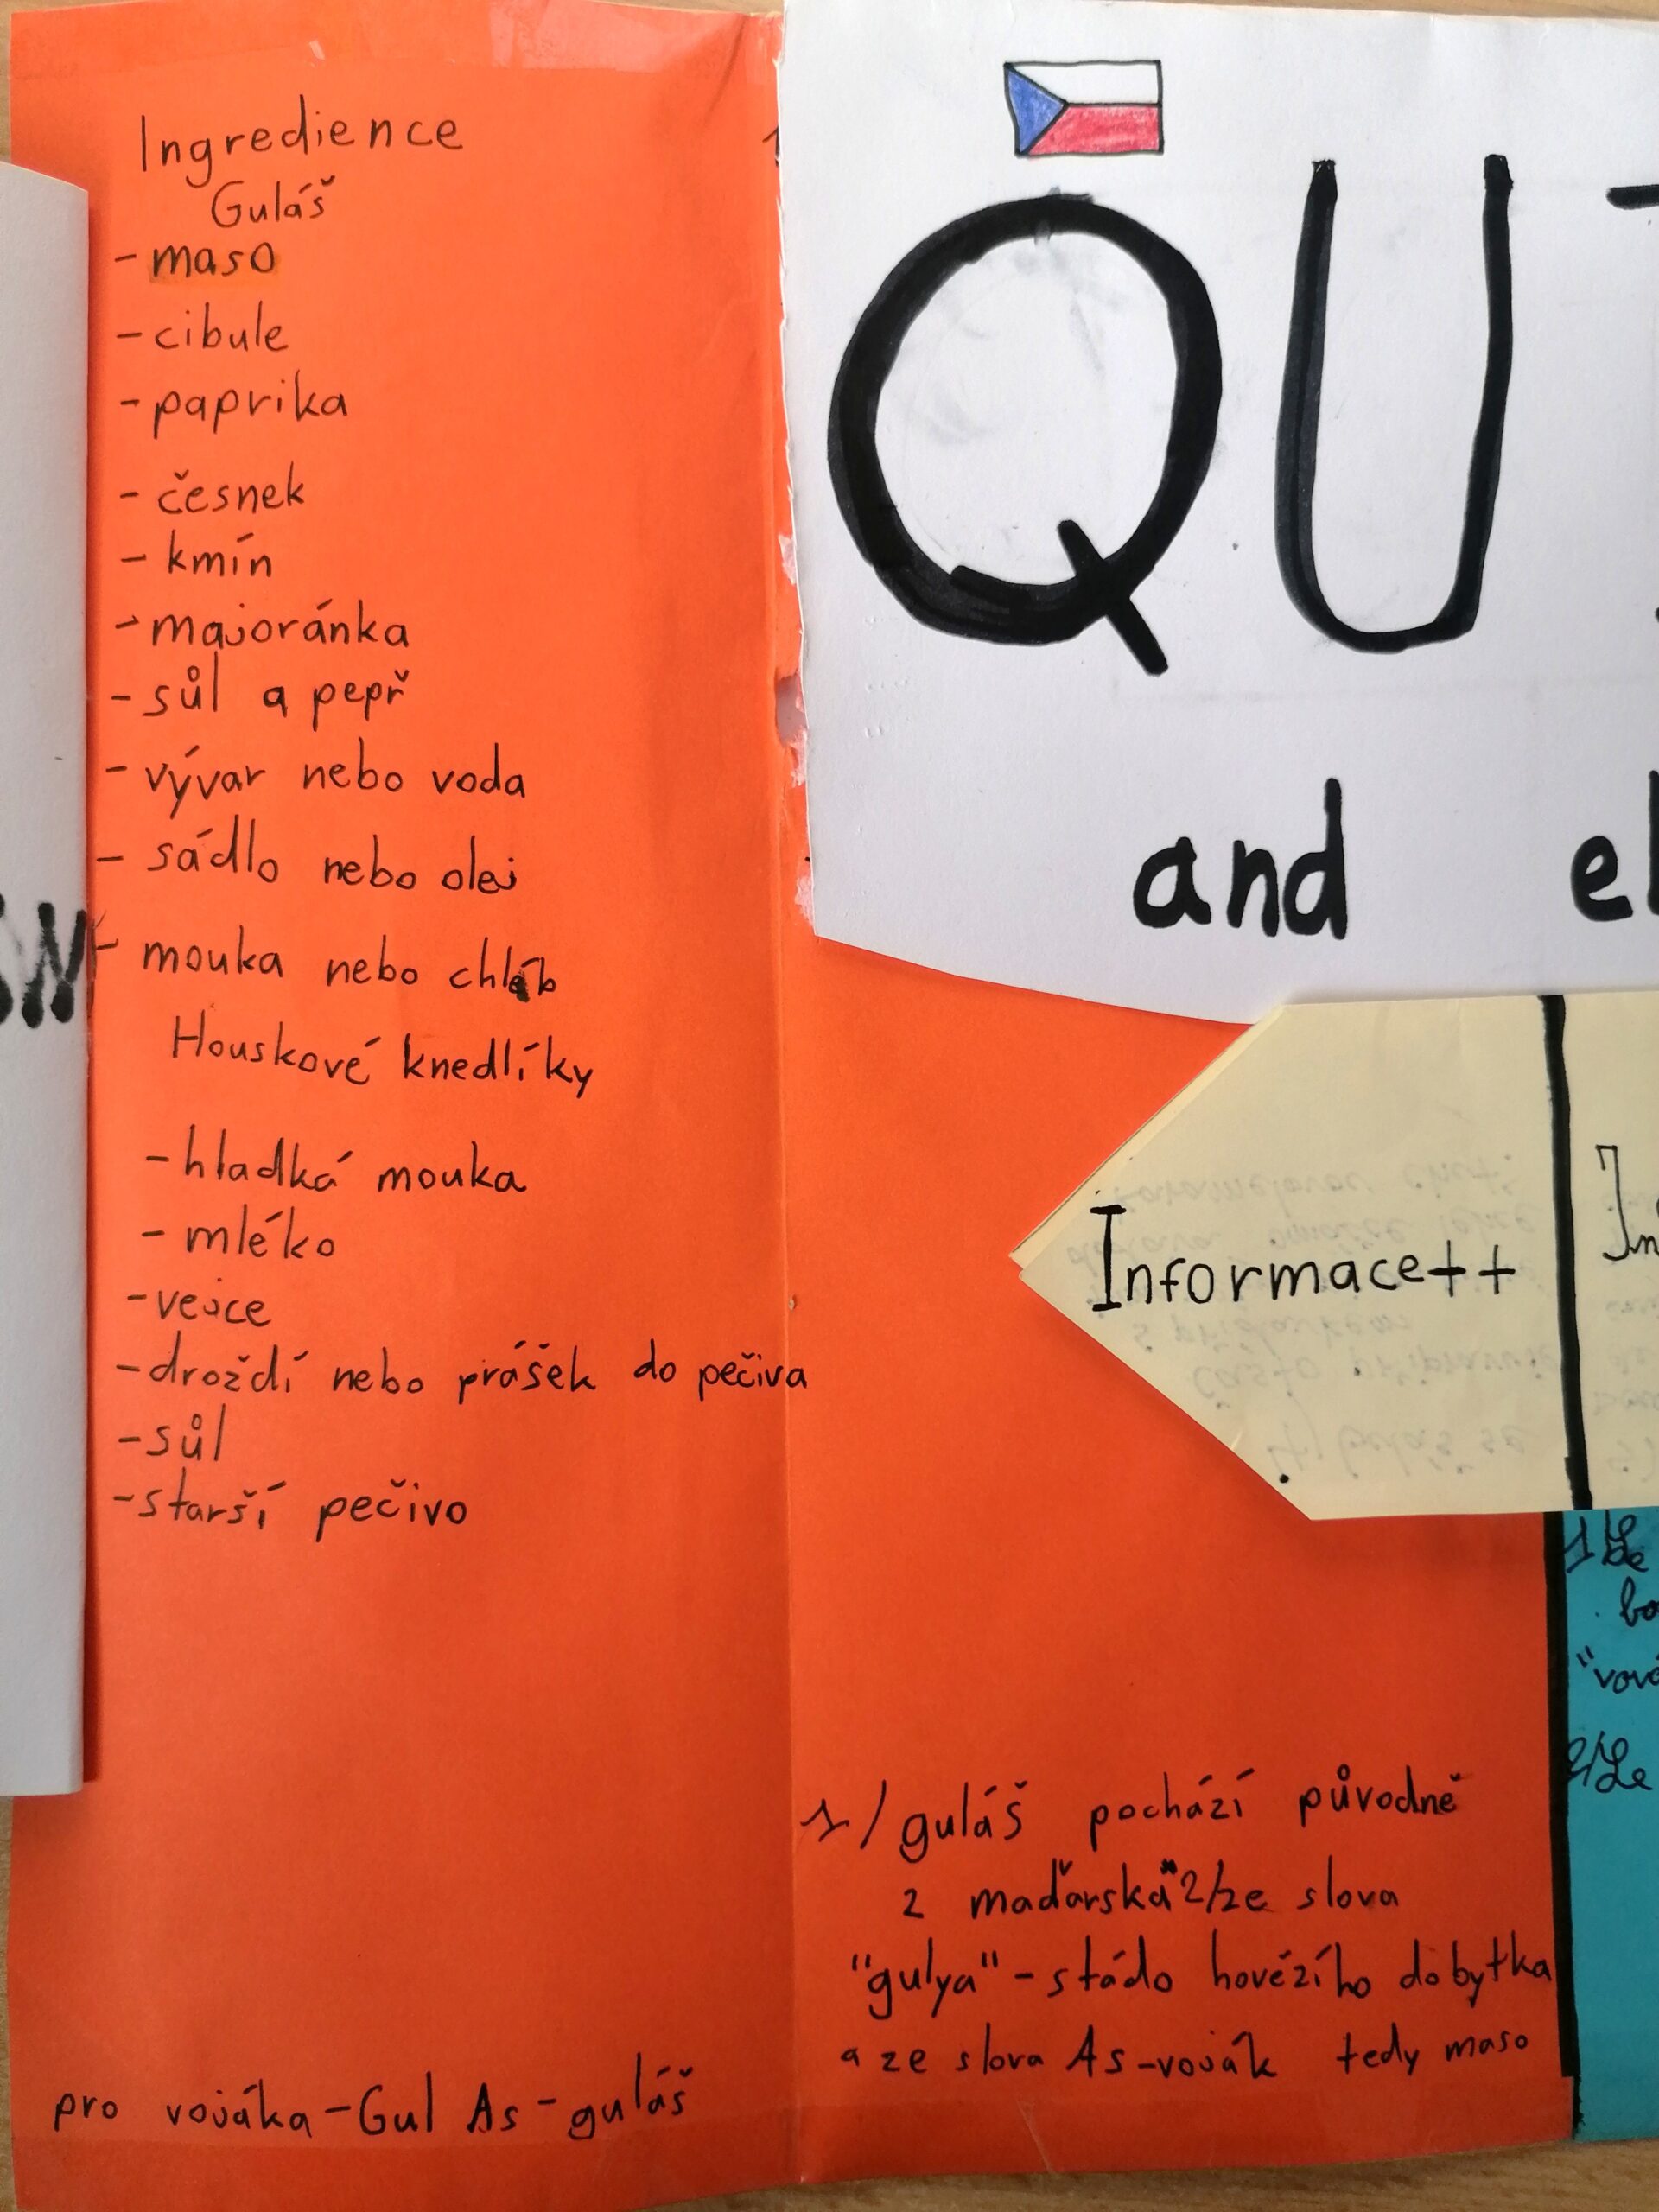 Ingredience
Guláš
- maso
- cibule
- paprika
- česnek
- kmín
- majoránka
- sůl a pepř
- vývar nebo voda
- sádlo nebo olej
- mouka nebo chléb
Houskové knedlíky
- hladká mouka
- mléko
- vejce
- droždí nebo prášek do pečiva
- sůl
- starší pečivo
pro vojáka - Gul As - guláš
QU
and
Informace++
1/ guláš pochází původně
z maďarska 2/ ze slova
"gulya" - stádo hovězího dobytka
a ze slova As - voják tedy maso